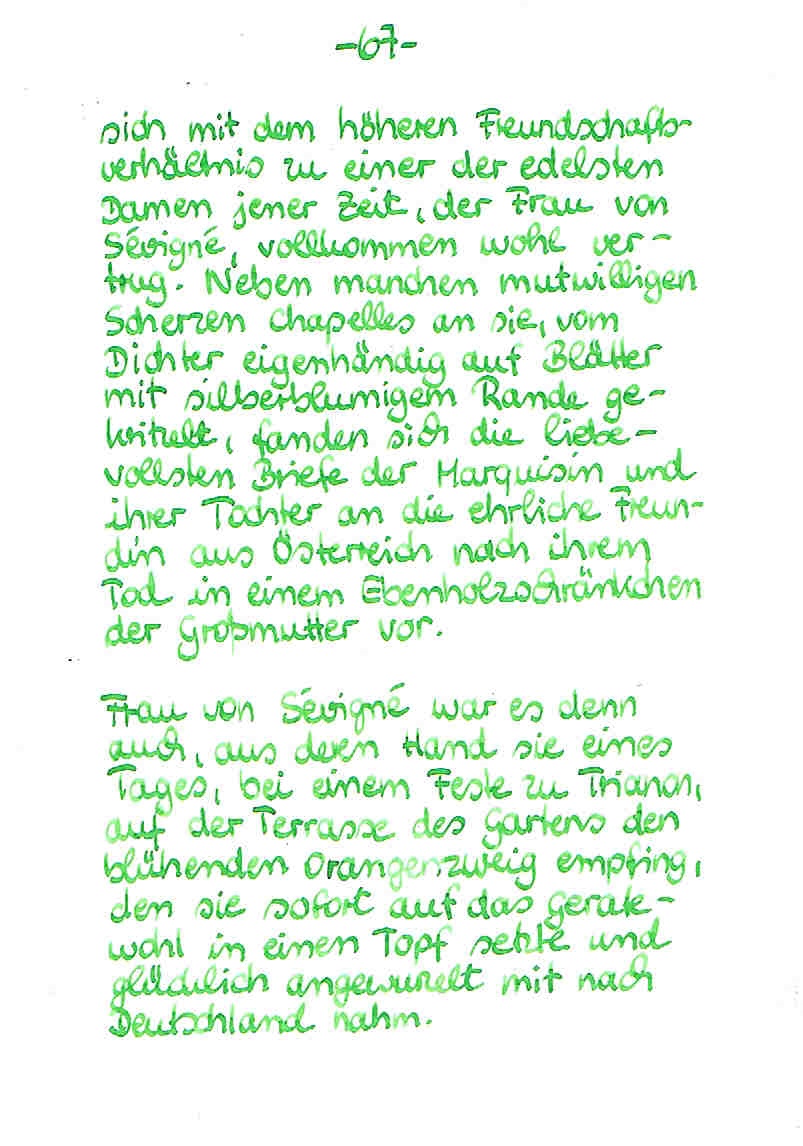 -67-
sich mit dem höheren Freundschafts-
verhältnis zu einer der edelsten
Damen jener Zeit, der Frau von
Sévigné, vollkommen wohl ver-
trug. Neben manchen mutwilligen
Scherzen Chapelles an sie, vom
Dichter eigenhändig auf Blätter
mit silberblumigem Rande ge-
kritzelt, fanden sich die liebe-
vollsten Briefe der Marquisin und
ihrer Tochter an die ehrliche Freun-
din aus Österreich nach ihrem
Tod in einem Ebenholzschränkchen
der Großmutter vor.
Frau von Sévigné war es denn
auch, aus deren Hand sie eines
Tages, bei einem Feste zu Trianon,
auf der Terrasse des Gartens den
blühenden Orangenzweig empfing,
den sie sofort auf das Gerate-
wohl in einen Topf setzte und
glücklich angewurzelt mit nach
Deutschland nahm.